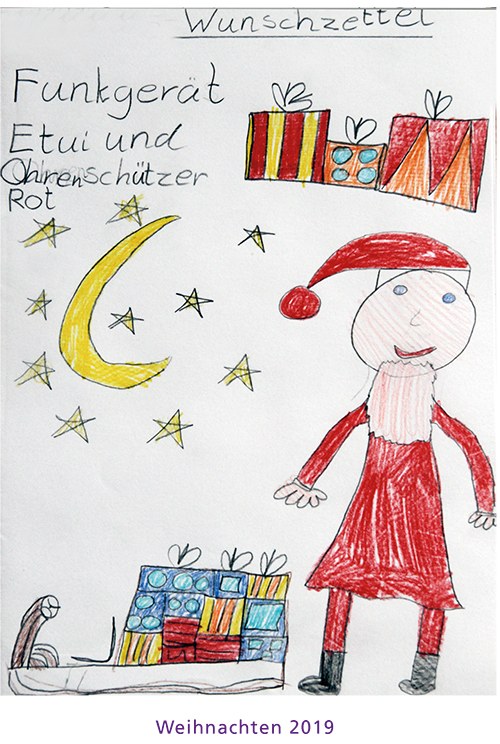 Wunschzettel
Funkgerät
Etui und
Ohrenschützer
Rot
Weihnachten 2019